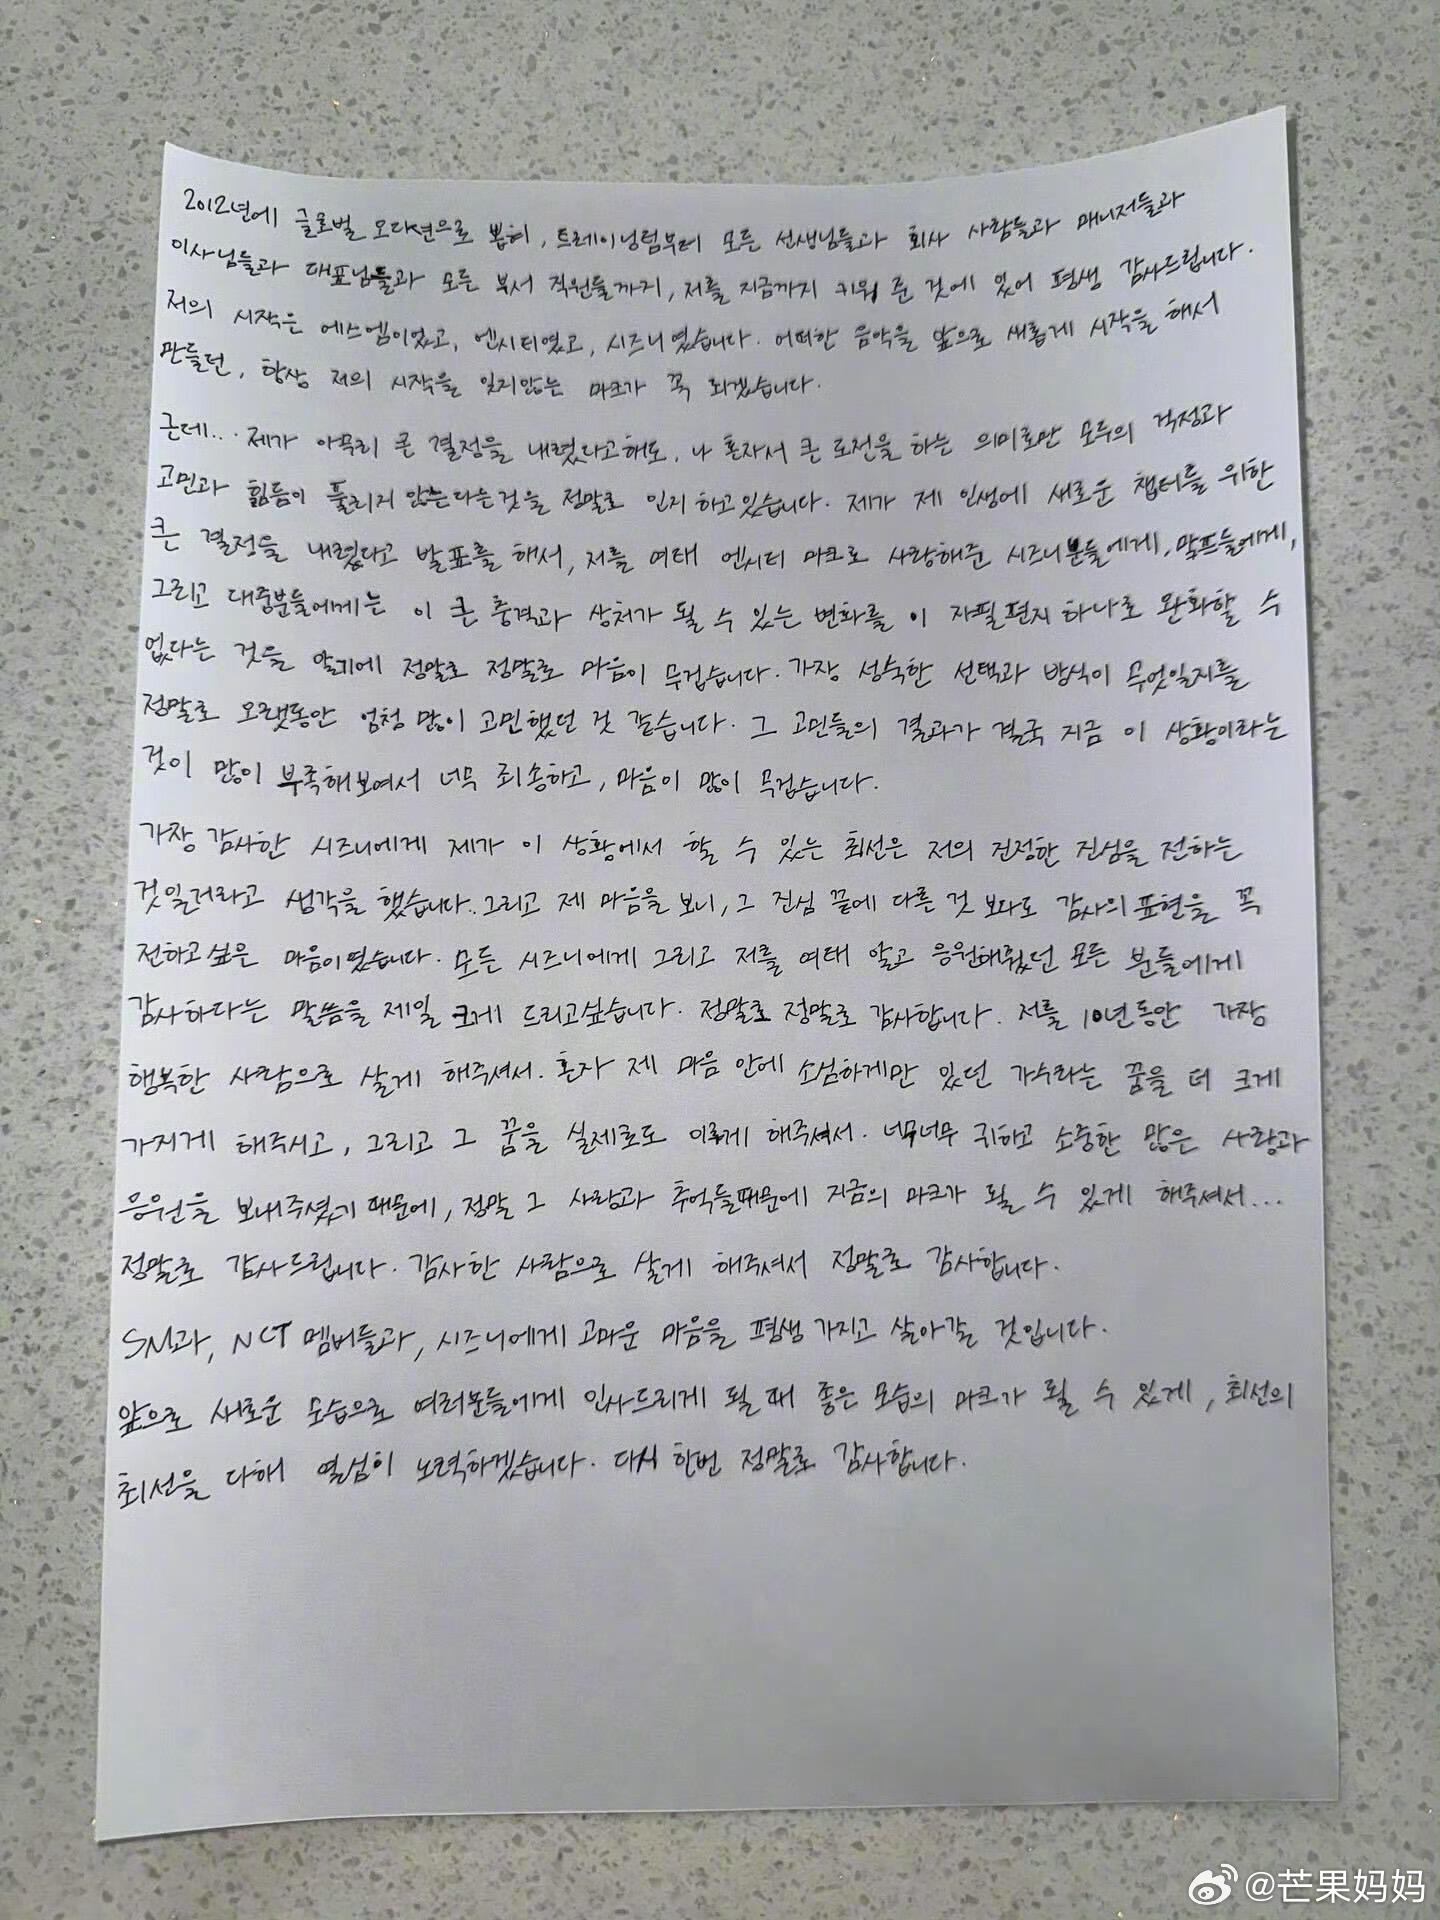 2012년에 글로벌 오디션으로 뽑혀, 트레이닝팀부터 모든 선생님들과 회사 사람들과 매니저들과
이사님들과 대표님들과 모든 부서 직원들까지, 저를 지금까지 키워 준 것에 있어 평생 감사드립니다.
저의 시작은 에스엠이었고, 엔시티였고, 시즈니였습니다. 어떠한 음악을 앞으로 새롭게 시작을 해서
만들던, 항상 저의 시작을 잊지않는 마크가 꼭 되겠습니다.
근데... 제가 아무리 큰 결정을 내렸다고해도, 나 혼자서 큰 도전을 하는 의미로만 모두의 걱정과
고민과 힘듦이 풀리지 않는다는것을 정말로 인지하고있습니다. 제가 제 인생에 새로운 챕터를 위한
큰 결정을 내렸다고 발표를 해서, 저를 여태 엔시티 마크로 사랑해준 시즈니분들에게, 말프들에게,
그리고 대중분들에게는 이 큰 충격과 상처가 될 수 있는 변화를 이 자필편지 하나로 완화할 수
없다는 것을 알기에 정말로 정말로 마음이 무겁습니다. 가장 성숙한 선택과 방식이 무엇일지를
정말로 오랫동안 엄청 많이 고민했던 것 같습니다. 그 고민들의 결과가 결국 지금 이 상황이라는
것이 많이 부족해보여서 너무 죄송하고, 마음이 많이 무겁습니다.
가장 감사한 시즈니에게 제가 이 상황에서 할 수 있는 최선은 저의 진정한 진심을 전하는
것일거라고 생각을 했습니다. 그리고 제 마음을 보니, 그 진심 끝에 다른 것 보다도 감사의 표현을 꼭
전하고싶은 마음이였습니다. 모든 시즈니에게 그리고 저를 여태 알고 응원해줬던 모든 분들에게
감사하다는 말씀을 제일 크게 드리고싶습니다. 정말로 정말로 감사합니다. 저를 10년동안 가장
행복한 사람으로 살게 해주셔서. 혼자 제 마음 안에 소심하게만 있던 가수라는 꿈을 더 크게
가지게 해주시고, 그리고 그 꿈을 실제로도 이루게 해주셔서. 너무너무 귀하고 소중한 많은 사랑과
응원을 보내주셨기 때문에, 정말 그 사랑과 추억들때문에 지금의 마크가 될 수 있게 해주셔서...
정말로 감사드립니다. 감사한 사람으로 살게 해주셔서 정말로 감사합니다.
SM과, NCT 멤버들과, 시즈니에게 고마운 마음을 평생 가지고 살아갈 것입니다.
앞으로 새로운 모습으로 여러분들에게 인사드리게 될때 좋은 모습의 마크가 될 수 있게, 최선의
최선을 다해 열심히 노력하겠습니다. 다시 한번 정말로 감사합니다.
@芒果妈妈